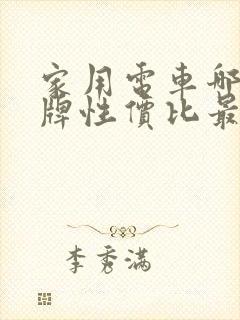 家用電車哪
牌性價比最
李秀滿